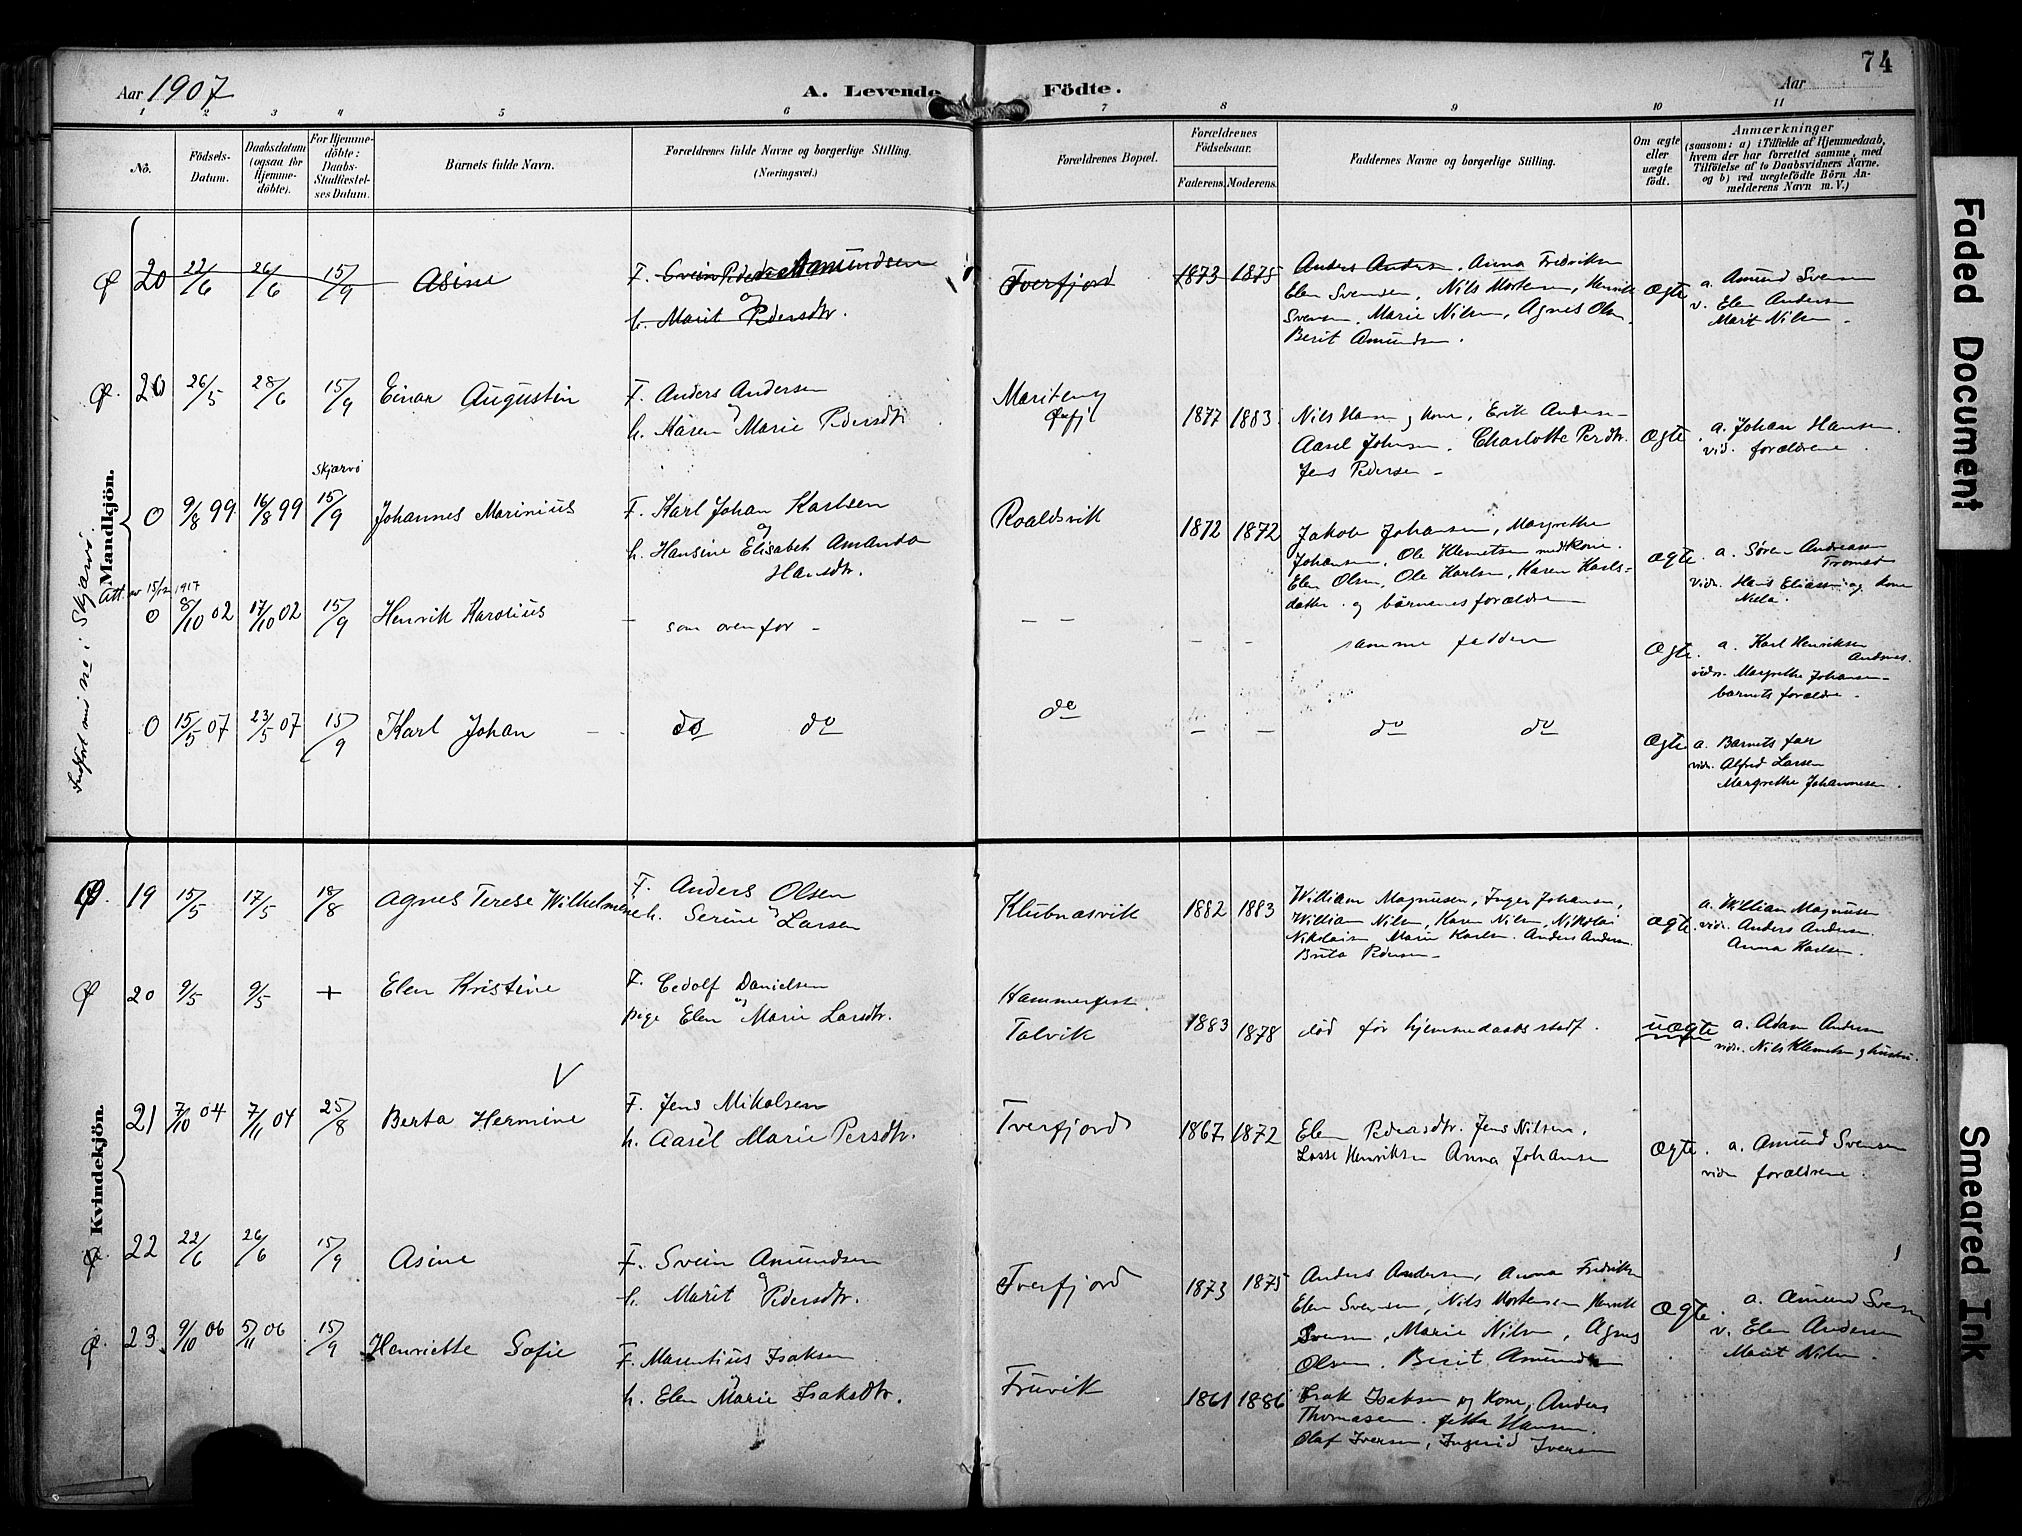 74
Aar 1907
A. Levende Födte.
Aar
1 2 3 4 5 6 7 8 9 10 11
No.
Födsels-Datum.
Daabsdatum (ogsaa for Hjemmedöbte).
For Hjemmedöbte: Daabs-Stadfæstelses Datum.
Barnets fulde Navn.
Forældrenes fulde Navne og borgerlige Stilling. (Næringsvei.)
Forældrenes Bopæl.
Forældrenes Födselsaar.
Faderens. Moderens.
Faddernes Navne og borgerlige Stilling.
Om ægte eller uægte födt.
Anmærkninger (saasom: a) i Tilfælde af Hjemmedaab, hvem der har forrettet samme, med Tilföielse af to Daabsvidners Navne. og b) ved uægtefödte Börn Anmelderens Navn m. V.)
Mandkjön.
Indført med no i Skjærvø
20 22/6 26/6 15/9 Asine
F. Svein Pedersen Amundsen
og
h. Marit Pedersdtr.
Tverfjord
1873 1875
Anders Anders, Anna Fredriksen
Elen Svendsen, Nils Mortensen, Henrik
Svensen, Marie Nilsen, Agnes Olsen,
Berit Amundsen.
Ægte
a. Amund Svensen
v. Elen Andersen
Marit Nilsen
20 26/5 28/6 15/9 Einar Augustin
F. Anders Andersen
og
h. Karen Marie Pedersdtr
Øxfj
1877 1883
Nils Hansen og kone, Erik Andersen
Aasel Johnsen. Charlotte Persdtr.
Jens Pedersen
Ægte
a. Johan Hansen.
vid. forældrene
Skjærvø
0 9/8 99 16/8 99 15/9 Johannes Marinius
F. Karl Johan Karlsen
og
h. Hansine Elisabet Amanda
Hansdtr.
Roaldsvik
1872 1872
Jakob Johansen, Margrethe
Johansen, Ole Klemetsen med kone.
Elen Olsen, Ole Karlsen, Karen Karls-
datter og børnenes forældre
Ægte
a. Søren Andreasen
Tromsø
vidn. Hans Eliassen og kone
Att. av 15/12 1917
0 8/10 02 17/10 02 15/9 Henrik Karolius
som ovenfor
samme faddere
Ægte.
a. Karl Henriksen
Andsnes.
vidn. Margrethe Johansen
barnets forældre
0 15/5 07 23/5 07 15/9 Karl Johan
do do
do
do do
Ægte
a. Barnets far
vidn. Alfred Larsen
Margrethe Johannesen
Kvindekjön.
19 15/5 17/5 18/8 Agnes Terese Wilhelmine
F. Anders Olsen
og
h. Serine Larsen
Klubnæsvik
1882 1883
William Magnusen, Inger Johansen,
William Nilsen, Karen Nilsen, Nikolai
Nikolaisen Marie Karlsen. Anders Andersen
Brita Pedersen
Ægte
a. William Magnusen
vidn. Anders Andersen
Anna Karlsen.
20 9/5 9/5 + Elen Kristine
F. Cedolf Danielsen
og
pige Elen Marie Larsdtr.
Hammerfest
Talvik
1883 1878
død før hjemmedaabs stadf.
uægte
a. Adam Andersen
vidn. Nils Klemetsen og hustru.
V
21 7/10 04 7/11 04 25/8 Berta Hermine
F. Jens Mikalsen
og
h. Aasel Marie Persdtr.
Tverfjord
1867 1872
Elen Pedersdtr. Jens Nilsen.
Lasse Henriksen Anna Johansen
Ægte.
a. Amund Svensen
vidn forældrene
22 22/6 26/6 15/9 Asine
F. Svein Amundsen
og
h. Marit Pedersdtr.
Tverfjord
1873 1875
Anders Andersen, Anna Fredriksen
Elen Svensen, Nils Mortensen Henrik
Svensen, Marie Nilsen, Agnes
Olsen. Berit Amundsen
Ægte.
a. Amund Svensen
v. Elen Andersen
Marit Nilsen.
23 9/10 06 5/11 06 15/9 Henriette Sofie
F. Marentius Isaksen
og
h. Elen Marie Isaksdtr.
Fruvik
1861 1886
Isak Isaksen og Kone, Anders
Thomasen. Hansen.
Olaf Iversen, Ingerid Iversen
Faded Document
Smeared Ink